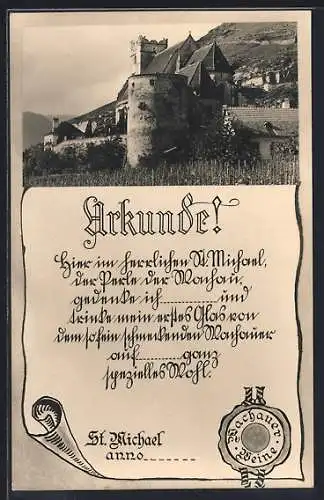 Urkunde!
Hier im herrlichen St. Michael,
der Perle der Wachau,
gedenke ich __________ und
trinke mein erstes Glas von
dem so fein schmeckenden Wachauer
auf ________ ganz
spezielles Wohl.
St. Michael
anno __________
Wachauer
Weine